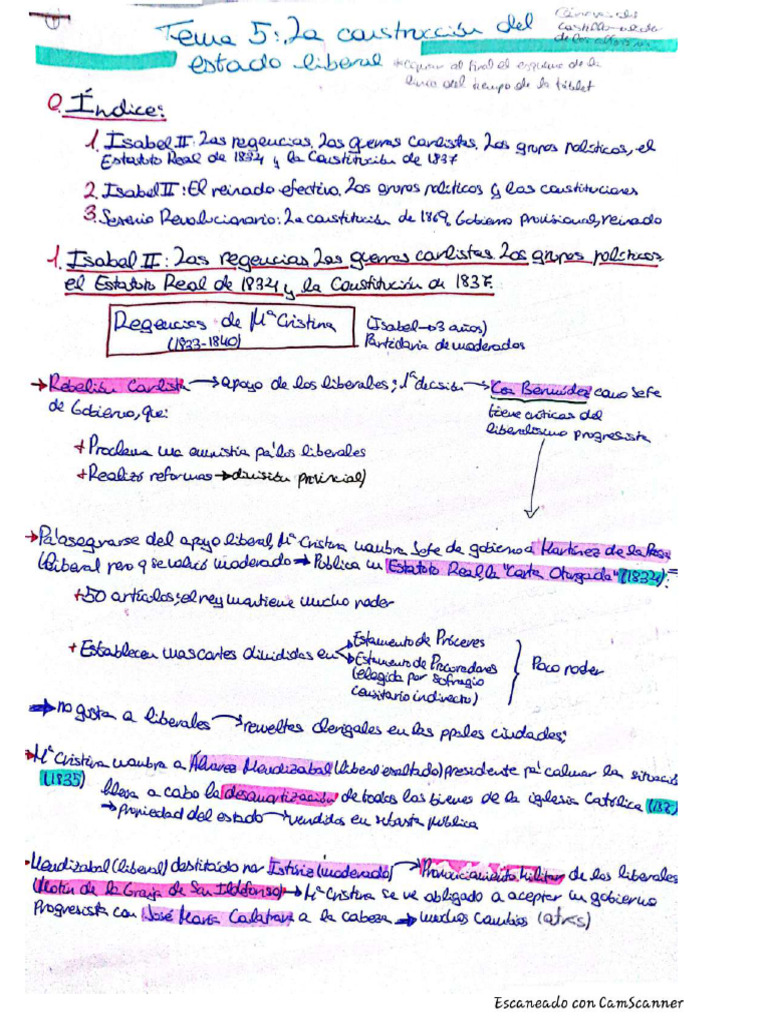 Tema 5: La construcción del
estado liberal
*copiar al final el esquema de la
línea del tiempo de la tablet
0. Índice:
1. Isabel II: Las regencias. Las guerras carlistas. Los grupos políticos, el
Estatuto Real de 1834 y la Constitución de 1837
2. Isabel II: El reinado efectivo. Los grupos políticos y las constituciones
3. Sexenio Revolucionario: La constitución de 1869, Gobierno provisional, reinado
1. Isabel II: Las regencias Las guerras carlistas. Los grupos políticos,
el Estatuto Real de 1834 y la Constitución de 1837.
Regencias de Mª Cristina
(1833-1840)
(Isabel→3 años)
Partidaria de moderados
→Rebelión Carlista → apoyo de los liberales; 1ª decisión → Cea Bermúdez como Jefe
de Gobierno, que:
tiene críticas del
liberalismo progresista
+ Proclama una amnistía pa' los liberales
+ Realizó reformas → división provincial)
→ Pa' asegurarse del apoyo liberal, Mª Cristina nombra Jefe de gobierno a Martínez de la Rosa
(liberal pero q se volvió moderado → Publica un Estatuto Real, la "Carta Otorgada" (1834):
+50 artículos; el rey mantiene mucho poder
+ Establecen unas cortes divididas en
Estamento de Próceres
Estamento de Procuradores
(elegida por sufragio
censitario indirecto)
Poco poder
→ no gusta a liberales → revueltas clerigales en las ppales ciudades;
→ Mª Cristina nombra a Álvarez Mendizábal (liberal exaltado) presidente pa' calmar la situació
(1835) lleva a cabo la desamortización de todos los bienes de la iglesia Católica
→ propiedad del estado → vendidos en subasta pública
• Mendizábal (liberal) destituido por Istúriz (moderado) → Pronunciamiento militar de los liberales
(Motín de la Granja de San Ildefonso) → Mª Cristina se ve obligado a aceptar un gobierno
Progresista con José María Calatrava a la cabeza → muchos cambios (atrás)
Escaneado con CamScanner